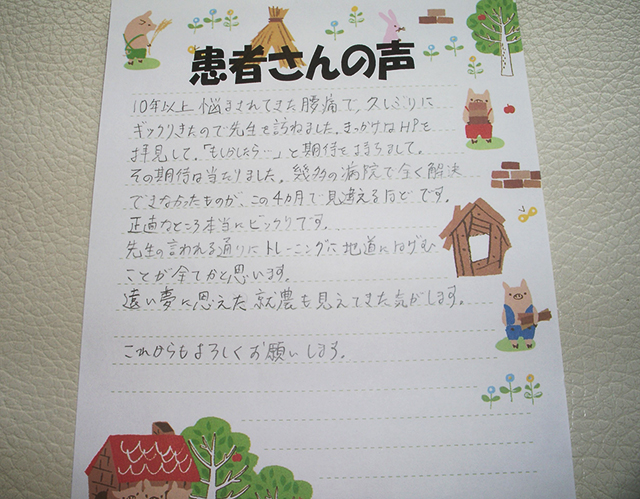 患者さんの声
10年以上悩まされてきた腰痛で、久しぶりに
ギックリきたので先生を訪ねました。きっかけはHPを
拝見して、「もしかしたら…」と期待をまちまして。
その期待は当たりました。幾多の病院で全く解決
できなかったものが、この4カ月で見違えるほどです。
正直なところ本当にビックリです。
先生の言われる通りにトレーニングに地道にはげむ
ことが全てかと思います。
遠い夢に思えた就農も見えてきた気がします。
これからもよろしくお願いします。